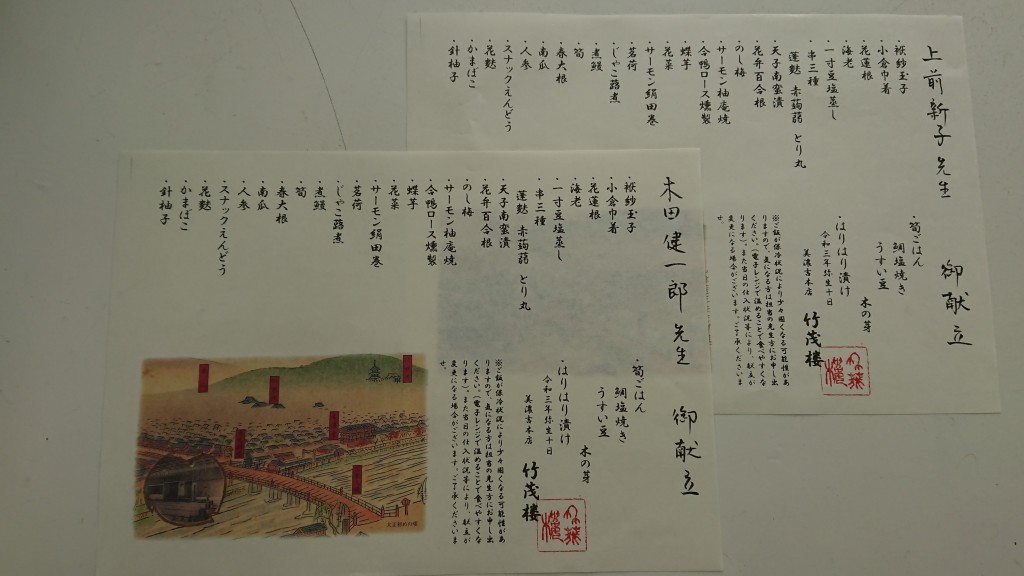 上前新子先生 御献立
・袱紗玉子
・小倉巾着
・花蓮根
・海老
・一寸豆塩蒸し
・串三種
蓬麩 赤蒟蒻 とり丸
・天子南蛮漬
・花弁百合根
・のし梅
・サーモン柚庵焼
・合鴨ロース燻製
・蝶芋
・花菜
・サーモン絹田巻
・茗荷
・じゃこ蕗煮
・煮鰻
・筍
・春大根
・南瓜
・人参
・スナックえんどう
・花麩
・かまぼこ
・針柚子
・筍ごはん
鯛塩焼き
うすい豆
木の芽
・はりはり漬け
令和三年弥生十日
美濃吉本店 竹茂楼
※ご飯が保冷状況により少々固くなる可能性があ
りますので、気になる方は担当の先生方にお申し出
ください。(電子レンジで温めることで食べやすくな
ります)。また当日の仕入状況等により、献立が
変更になる場合がございます。ご了承くださいま
せ。
木田健一郎先生 御献立
・袱紗玉子
・小倉巾着
・花蓮根
・海老
・一寸豆塩蒸し
・串三種
蓬麩 赤蒟蒻 とり丸
・天子南蛮漬
・花弁百合根
・のし梅
・サーモン柚庵焼
・合鴨ロース燻製
・蝶芋
・花菜
・サーモン絹田巻
・茗荷
・じゃこ蕗煮
・煮鰻
・筍
・春大根
・南瓜
・人参
・スナックえんどう
・花麩
・かまぼこ
・針柚子
・筍ごはん
鯛塩焼き
うすい豆
木の芽
・はりはり漬け
令和三年弥生十日
美濃吉本店 竹茂楼
※ご飯が保冷状況により少々固くなる可能性があ
りますので、気になる方は担当の先生方にお申し出
ください。(電子レンジで温めることで食べやすくな
ります)。また当日の仕入状況等により、献立が
変更になる場合がございます。ご了承くださいま
せ。